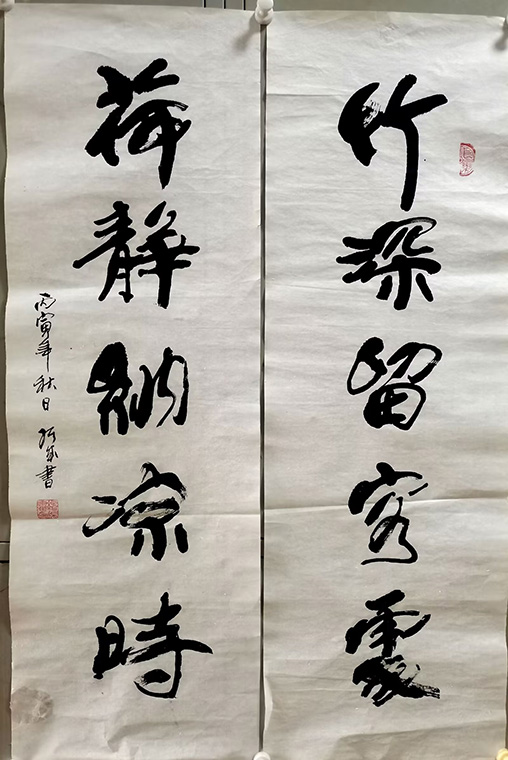 竹深留客處
荷靜納凉時
丙寅年秋日 書